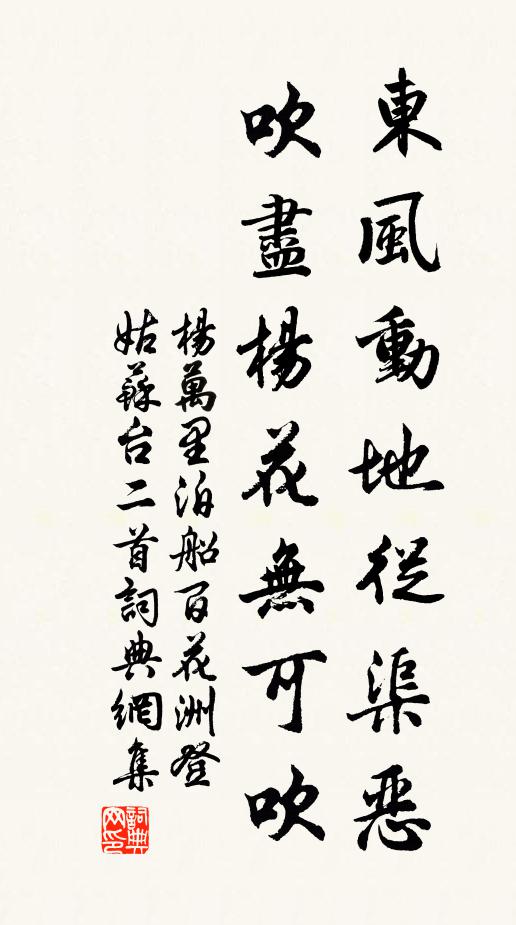 東風動地從渠惡
吹盡楊花無可吹
楊萬里泊船百花洲登
姑蘇台二首詞典網集
詞典網印